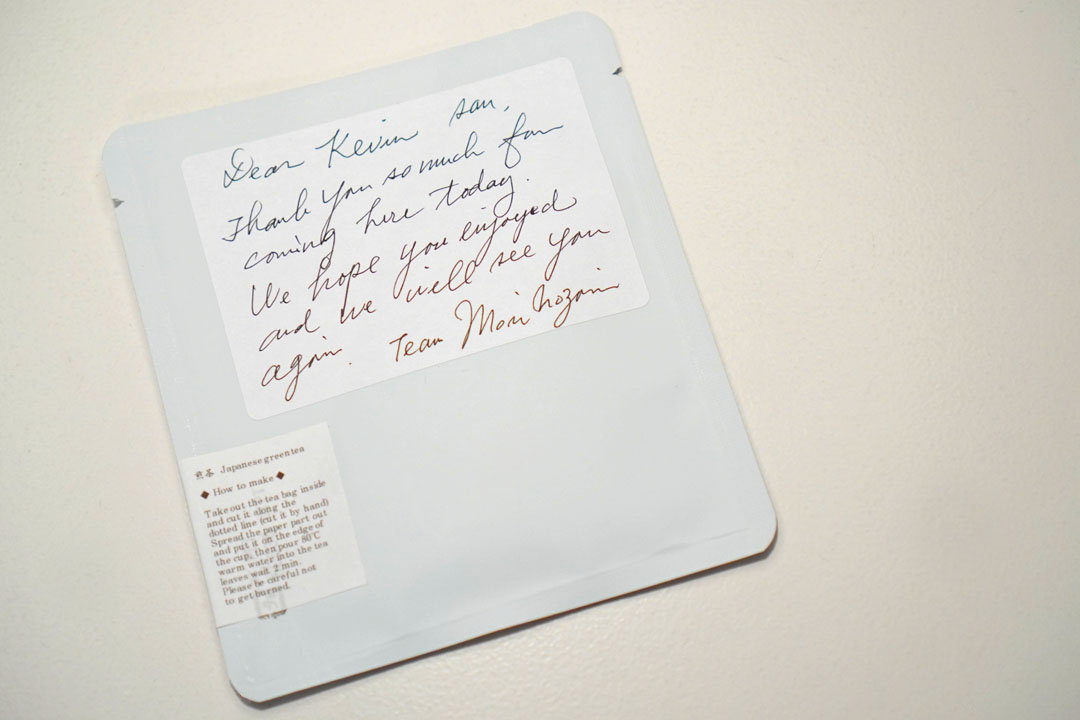 Dear Kevin san,
Thank you so much for
coming here today.
We hope you enjoyed
and we will see you
again. Team Morihozami
煎茶 Japanese green tea
◆ How to make ◆
Take out the tea bag inside
and cut it along the
dotted line (cut it by hand)
Spread the paper part out
and put it on the edge of
the cup, then pour 80℃
warm water into the tea
leaves wait 2 min.
Please be careful not
to get burned.